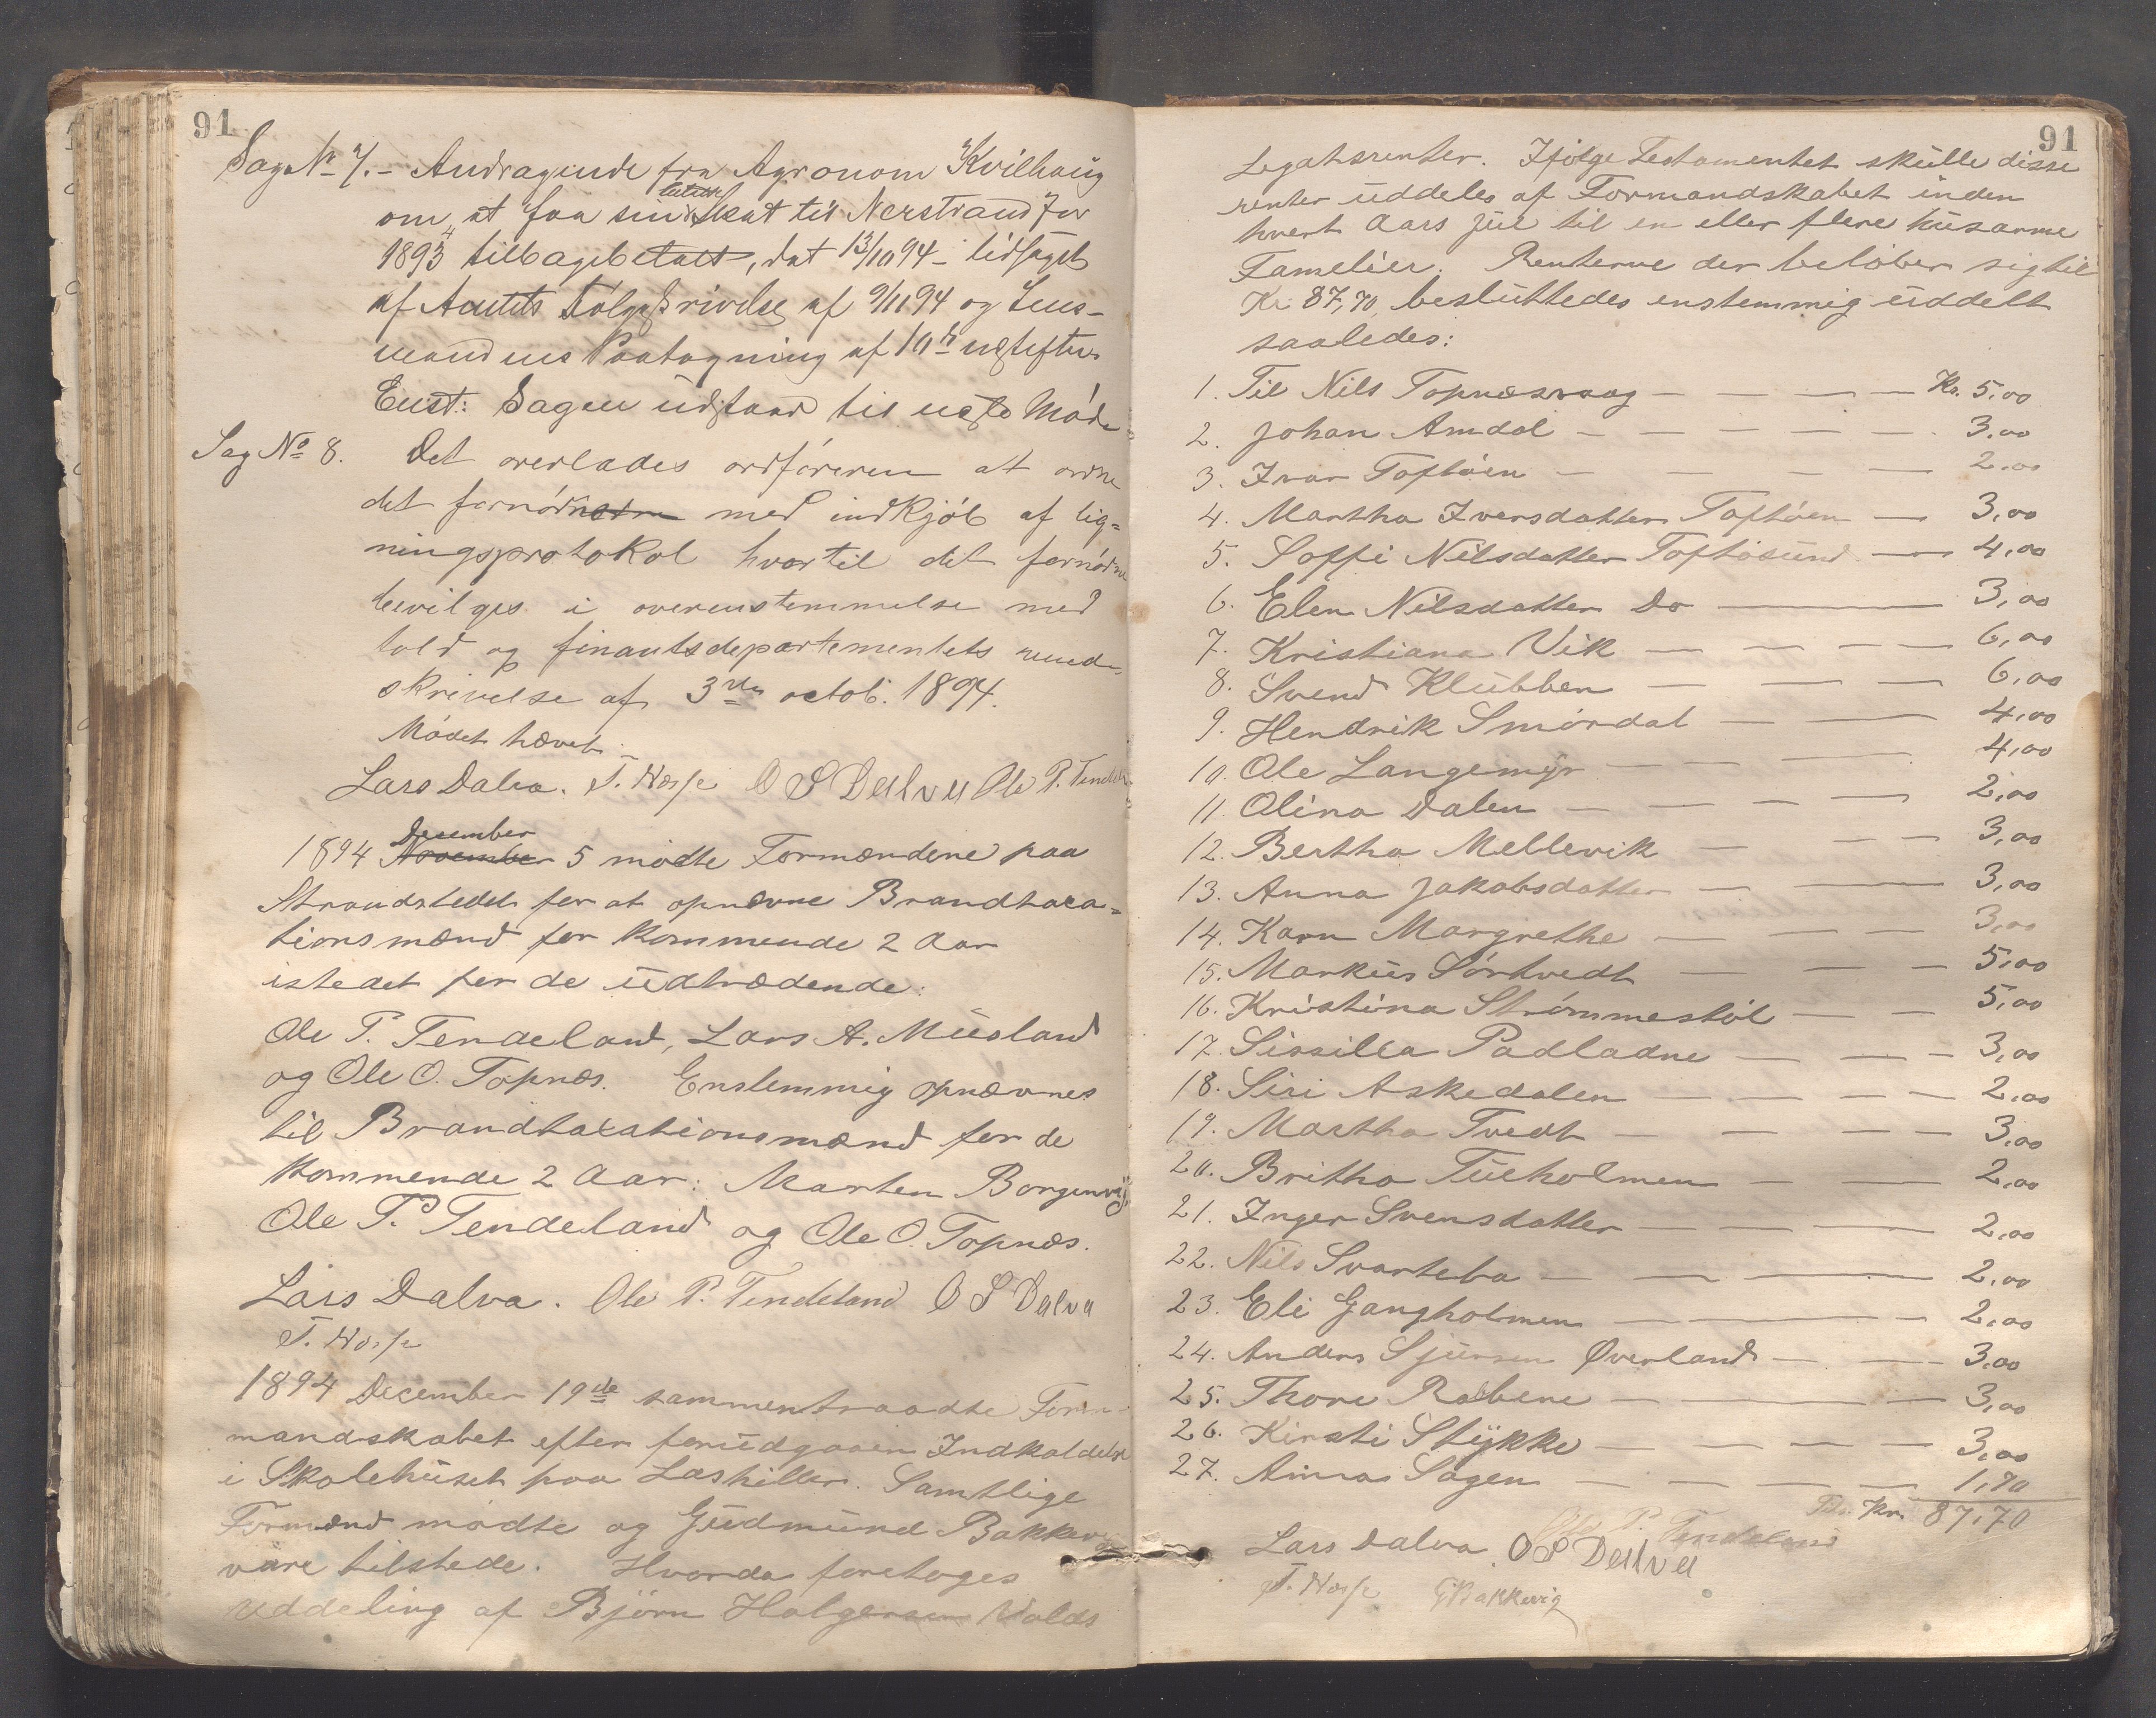 91
Sag No 7. - Andragende fra Agronom Kvilhaug
om at faa sin betalte Skat til Nerstrand for
1893/4 tilbagebetalt, dat 13/10 94 - ledsaget
af Amtets Følgeskrivelse af 9/11 94 og Lens-
mandens Paategning af 10de næstefter
Enst: Sagen udstaar til næste Møde
Sag No 8. Det overlades ordføreren at ordne
det fornødne med indkjøb af lig-
ningsprotokol hvortil det fornødne
bevilges i overenstemmelse med
told og finantsdepartementets rund-
skrivelse af 3die octob. 1894.
Mødet hævet. -
Lars Dalva. T. Næsse O S Dalva Ole P. Tendeland
December
1894 November 5 mødte Formændene paa
Strandstedet for at opnævne Brandtaxa-
tionsmænd for kommende 2 Aar
istedet for de udtrædende:
Ole P. Tendeland, Lars A. Musland
og Ole O. Topnæs. Enstemmig opnævnes
til Brandtaxationsmænd for de
kommende 2 Aar: Marten Borgenvig,
Ole P. Tendeland og Ole O. Topnæs.
Lars Dalva. Ole P. Tendeland O S Dalva
T. Næsse
1894 December 19de sammentraadte For-
mandskabet efter forudgaaen Indkaldelse
i Skolehuset paa Lashiller. Samtlige
Formænd mødte og Gudmund Bakkevig
vare tilstede. Hvorda foretoges
uddeling af Bjørn Holgersens Valds
91
Legatsrenter. Ifølge Testamentet skulle disse
renter uddeles af Formandskabet inden
hvert Aars Jul til en eller flere husarme
Famelier. Renterne der beløber sig til
Kr 87,70, besluttedes enstemmig uddelt
saaledes:
1. Til Nils Topnæsvaag — — — Kr. 5,00
2. Johan Amdal — — — — — 3.00
3. Ivar Toftøen — — — — 2.00
4. Martha Iversdatter Toftøen — 3,00
5. Soffi Nilsdatter Toftøsund — 4,00
6. Elen Nilsdatter Do — 3,00
7. Kristiana Vik — — — — 6,00
8. Svend Klubben — — — 6,00
9. Hendrik Smørdal — — — 4,00
10. Ole Langemyr — — — 4,00
11. Olina Dalen — — — — 2,00
12. Bertha Mellevik — — — 3,00
13. Anna Jakobsdatter — — 3,00
14. Karn Margrethe — — — 3,00
15. Markus Sørtvedt — — — 5,00
16. Kristina Strømmestøl — — 5,00
17. Sissilla Padladne — — — 3,00
18. Siri Askedalen — — — — 2,00
19. Martha Tvedt — — — — 3,00
20. Britha Tueholmen — — 2,00
21. Inger Svensdatter — — — 2,00
22. Nils Svartebø — — — 2,00
23. Eli Gangholmen — — — 2,00
24. Anders Sjursen Øverland — — 3,00
25. Thore Rabbene — — — 3,00
26. Kirsti Stykke — — — — 3,00
27. Anna Sagen — — — — 1,70
Kr. 87,70
Lars Dalva. O S Dalva Ole P. Tendeland
T. Næsse GBakkevig